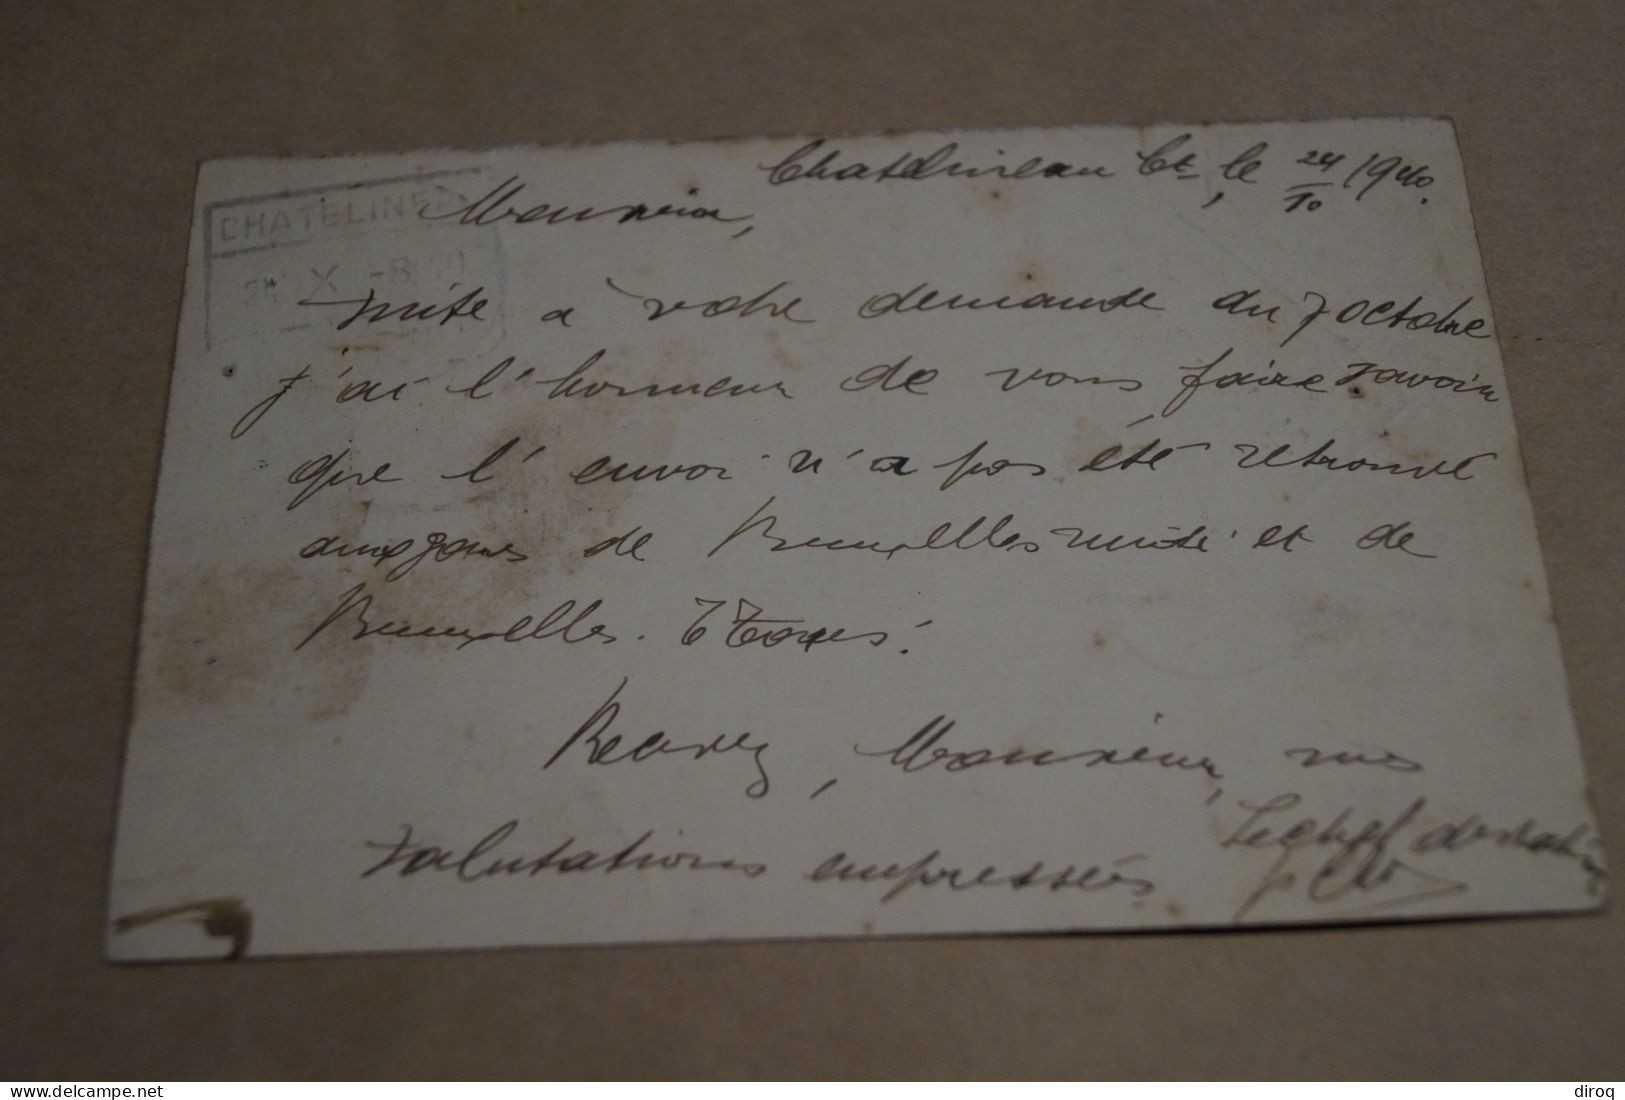 Chatelineau Ct, le 24/10 1940.
CHATELINEA
24 X -8 40
Monsieur,
Suite à votre demande du 7 octobre
j'ai l'honneur de vous faire savoir
que l'envoi n'a pas été retrouvé
aux gares de Bruxelles midi et de
Bruxelles. T Taxis.
Recevez, Monsieur, nos
salutations empressées
Le chef de station
www.delcampe.net
diroq